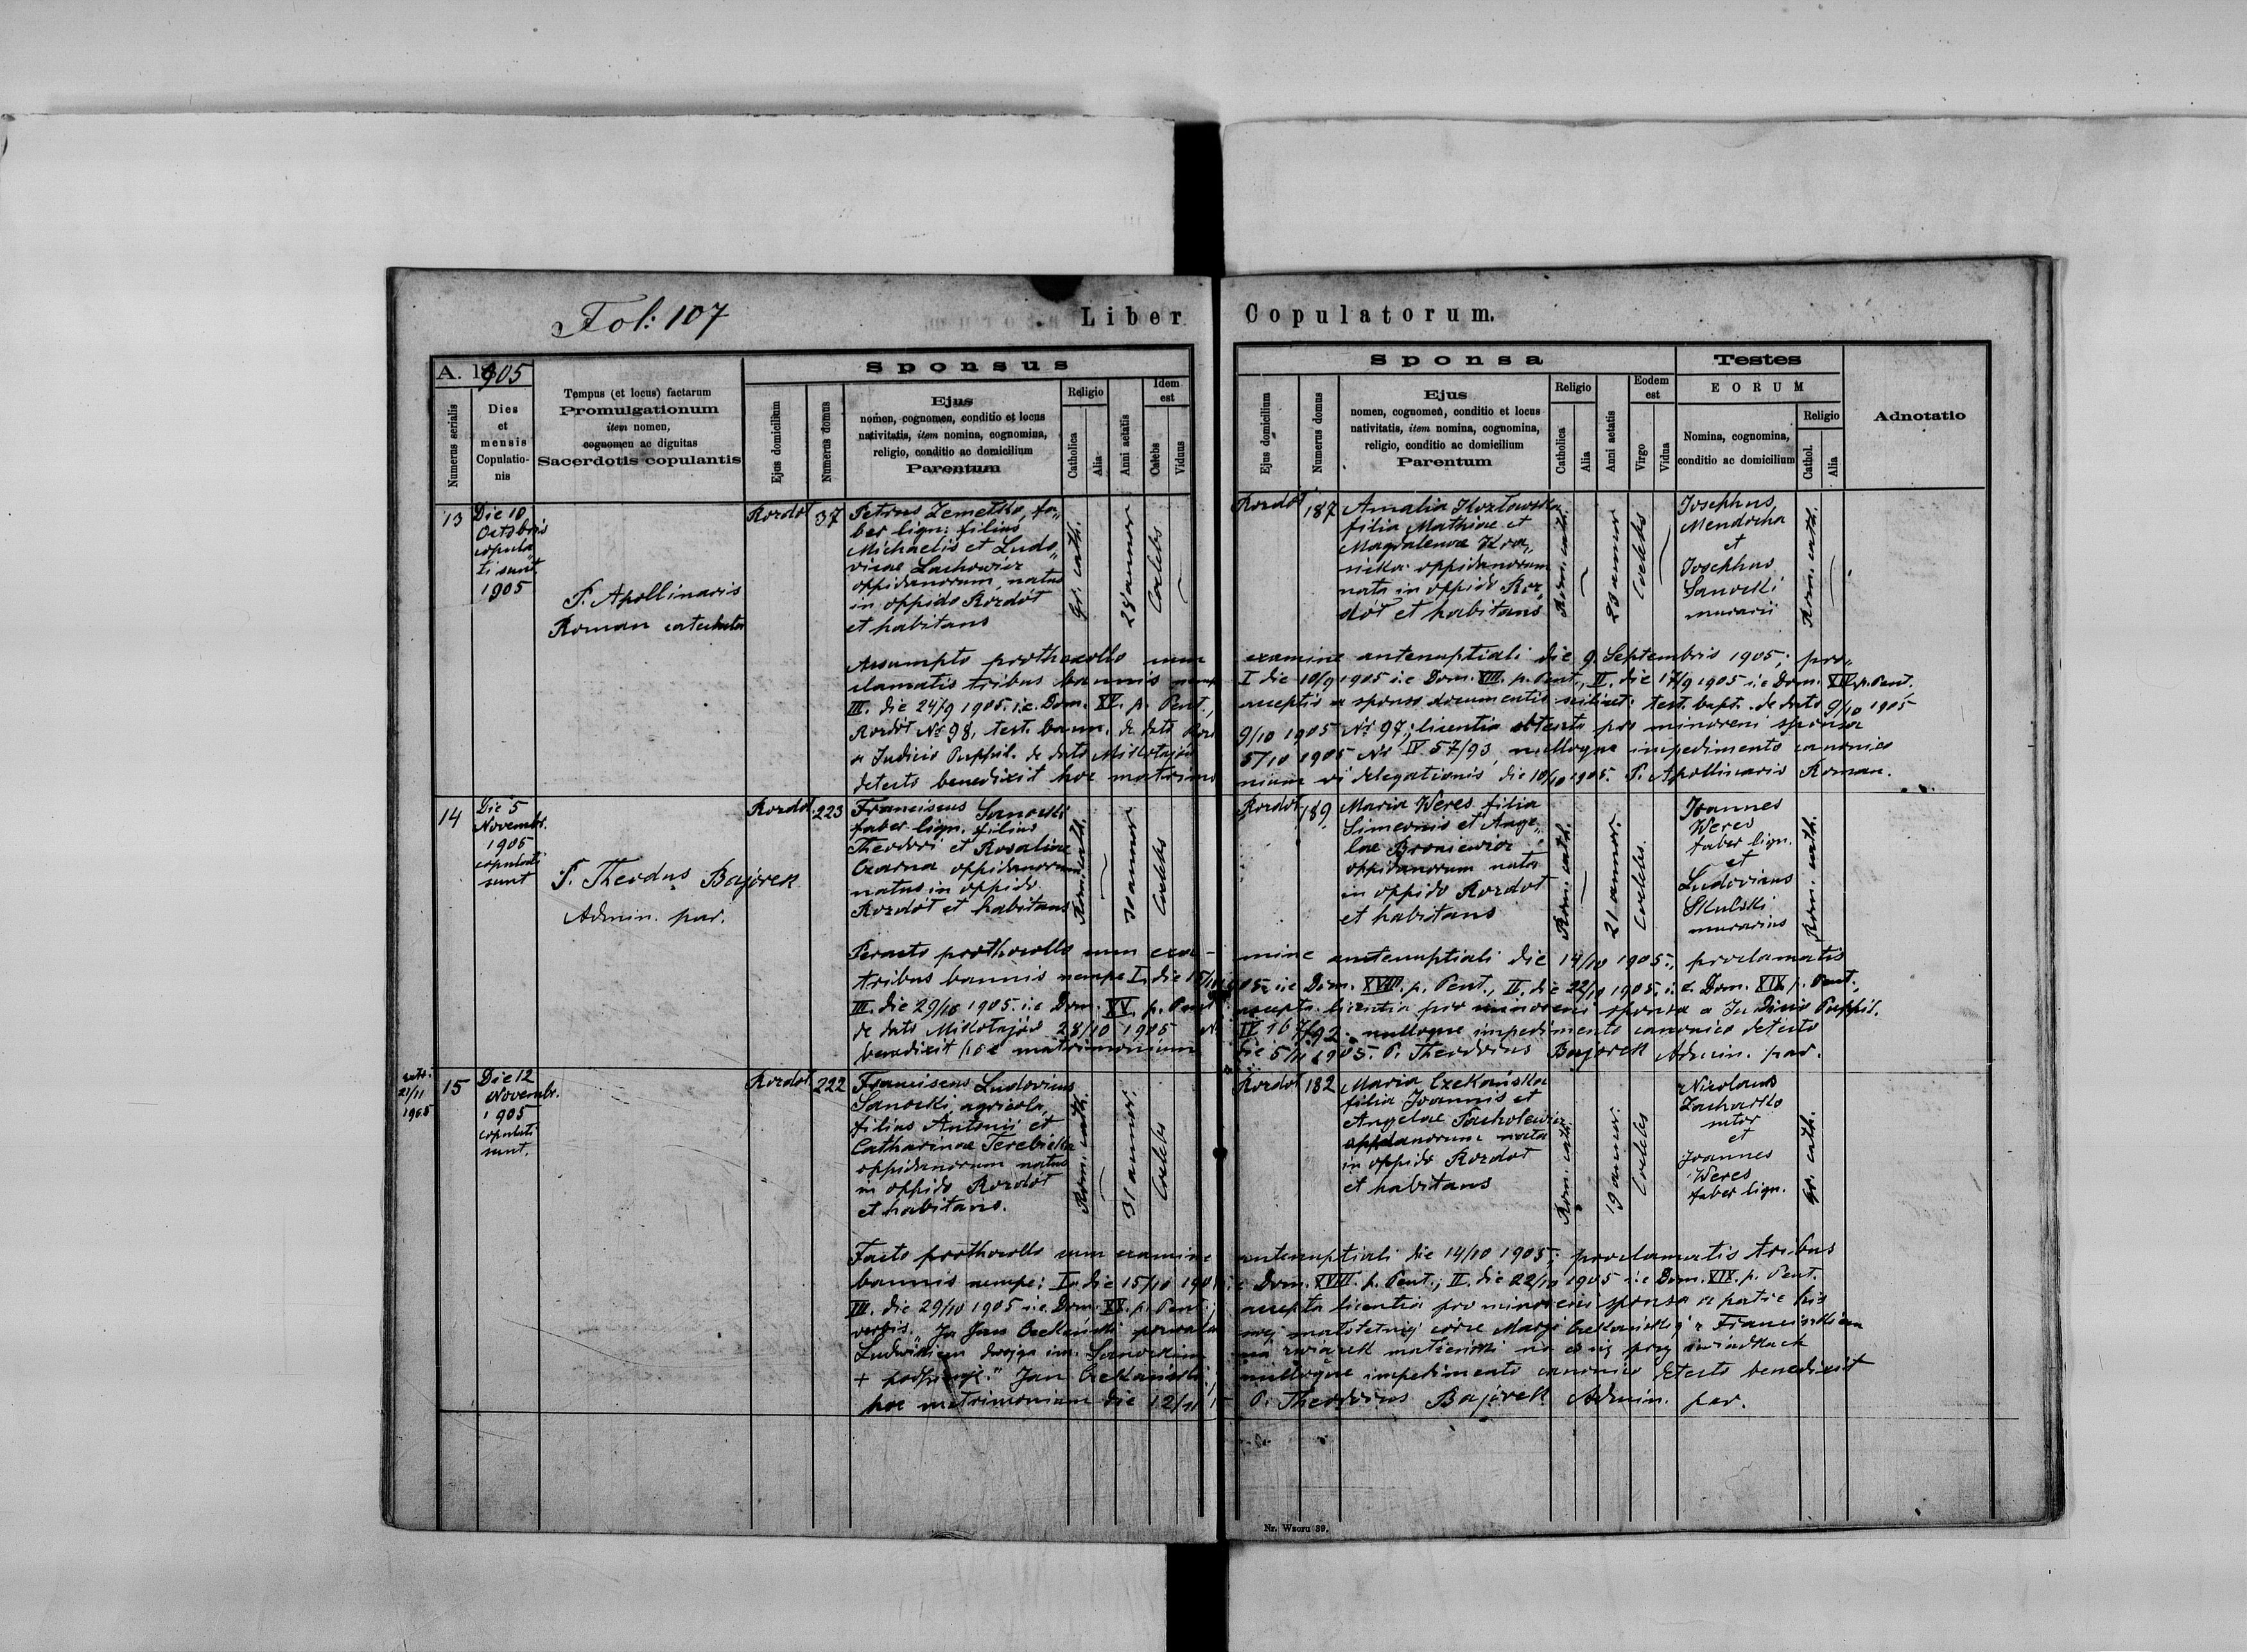 Fol: 107
Liber Copulatorum.
A. 1905
Numerus serialis
Dies et mensis Copulatio-nis
Tempus (et locus) factarum
Promulgationum
item nomen,
cognomen ac dignitas
Sacerdotis copulantis
Sponsus
Ejus domicilium
Numerus domus
Ejus
nomen, cognomen, conditio et locus
nativitatis, item nomina, cognomina,
religio, conditio ac domicilium
Parentum
Religio
Catholica
Alia
Anni aetatis
Idem est
Caelebs
Viduus
Sponsa
Ejus domicilium
Numerus domus
Ejus
nomen, cognomen, conditio et locus
nativitatis, item nomina, cognomina,
religio, conditio ac domicilium
Parentum
Religio
Catholica
Alia
Anni aetatis
Eodem est
Virgo
Vidua
Testes
EORUM
Nomina, cognomina,
conditio ac domicilium
Religio
Cathol.
Alia
Adnotatio
13
Die 10
Octobris
copula„
ti sunt
1905
P. Apollinaris
Roman catecheta
Rozdół
37
Petrus Zemełko, fa„
ber lign. filius
Michaelis et Ludo„
vicae Lachowicz
oppidanorum natus
in oppido Rozdół
et habitans
Gr. cath.
28 annor.
Coelebs
Rozdół
187
Amalia Kozłowska
filia Mathiae et
Magdalenae Kra„
nicka oppidanorum
nata in oppido Roz„
dół et habitans
Rom. cath.
23 annor
Coelebs
Josephus
Mendocha
et
Josephus
Sanocki
murarii
Rom. cath.
Assumpto prothocollo cum examine antenuptiali die 9. Septembris 1905; pro„
clamatis tribus bannis nempe I die 10/9 1905 i.e Dom. XIII. p. Pent., II. die 17/9 1905 i.e Dom. XIV p. Pent.
III. die 24/9 1905. i.e. Dom. XV. p. Pent., acceptis a sponso documentis scilicet: test. bapt. de dato 9/10 1905
Rozdół No 98, test. bann. de dato 9/10 1905 No 97; licentia obtenta pro minoreni sponsa
a Judicio Puppil. de dato Mikołajów 5/10 1905 No IV 57/93, nulloque impedimento canonico
detecto benedixit hoc matrimonium vi delegationis die 10/10 1905. P. Apollinaris Roman.
14
Die 5
Novembr.
1905
copulati
sunt
P. Theodus Bajorek
Admin. par.
Rozdół
223
Franciscus Sanocki
faber lign. filius
Theodori et Rosaliae
Czarna oppidanorum
natus in oppido
Rozdół et habitans
Rom. cath.
30 annor
Coelebs
Rozdół
189
Maria Weres filia
Simeonis et Ange„
lae Broniewicz
oppidanorum nata
in oppido Rozdół
et habitans
Rom. cath.
21 annor.
Coelebs.
Joannes
Weres
faber lign.
et
Ludovicus
Skulski
murarius
Rom. cath.
Peracto prothocollo cum exa-mine antenuptiali die 14/10 1905., proclamatis
tribus bannis nempe I. die 15/10 1905. i.e Dom. XVIII. p. Pent., II. die 22/10 1905. i.e. Dom. XIX p. Pent.,
III. die 29/10 1905. i.e Dom. XX. p. Pent. accepta licentia pro minoreni sponsa a Judicio Puppil.
de dato Mikołajów 28/10 1905 No IV 167/92 nulloque impedimento canonico detecto
benedixit hoc matrimonium die 5/11 1905. P. Theodorus Bajorek Admin. par.
21/11
1905
15
Die 12
Novembr.
1905
copulati
sunt.
Rozdół
222
Franciscus Ludovicus
Sanocki agricola,
filius Antonii et
Catharinae Terebiecka
oppidanorum natus
in oppido Rozdół
et habitans.
Rom. cath.
31 annor.
Coelebs
Rozdół
182
Maria Czekańska
filia Joannis et
Angelae
oppidanorum nata
in oppido Rozdół
et habitans
Rom. cath.
19 annor.
Coelebs
Nicolaus
Zacharko
sutor
et
Joannes
Weres
faber lign.
Gr. cath.
Facto prothocollo cum examine antenuptiali die 14/10 1905; proclamatis tribus
bannis nempe: I. die 15/10 1905 i.e Dom. XVIII. p. Pent.; II. die 22/10 1905 i.e Dom. XIX. p. Pent.
III. die 29/10 1905 i.e. Dom. XX. p. Pent; accepta licentia pro minoreni sponsa a patre his
verbis. „Ja Jan Czekański pozwalam mej małoletniej córce Maryi Czekańskiej z Franciszkiem
Ludwikiem dwojga im. Sanockim na związek małżeński na co się przy świadkach
+ podpisuję." Jan Czekański; nulloque impedimento canonico detecto benedixit
hoc matrimonium die 12/11 P. Theodorus Bajorek Admin. par.
Nr. Wzoru 39.